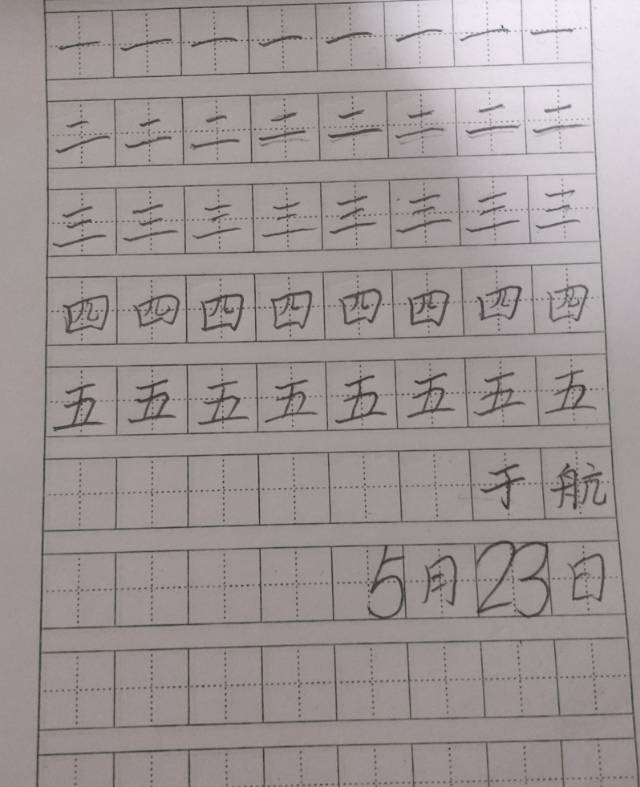 一一一一一一一一
二二二二二二二二
三三三三三三三三
四四四四四四四四
五五五五五五五五
于航
5月23日